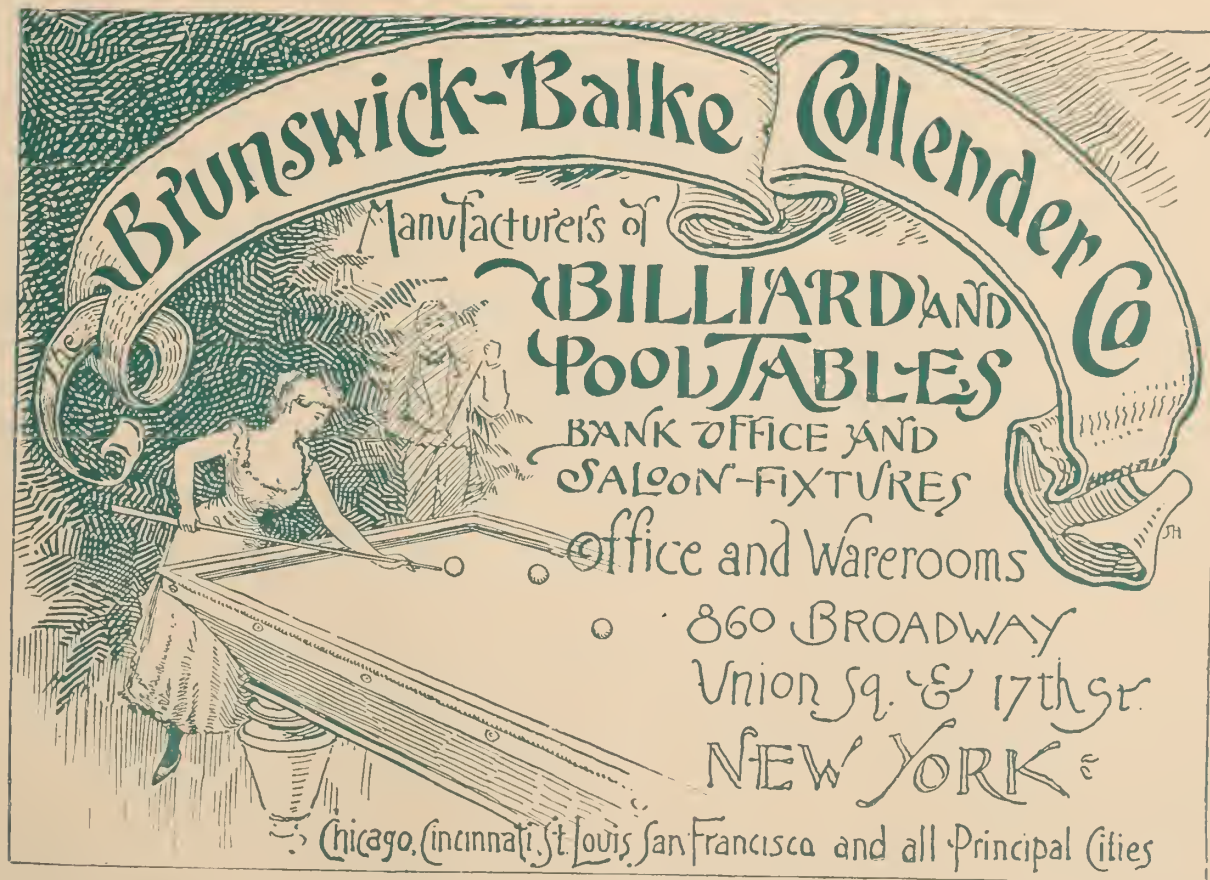 THE
Brunswick-Balke Collender Co
Manufacturers of
BILLIARD AND
POOL TABLES
BANK OFFICE AND
SALOON-FIXTURES
Office and Warerooms
860 BROADWAY
Union Sq. & 17th St.
NEW YORK
Chicago, Cincinnati, St. Louis, San Francisco and all Principal Cities
SH